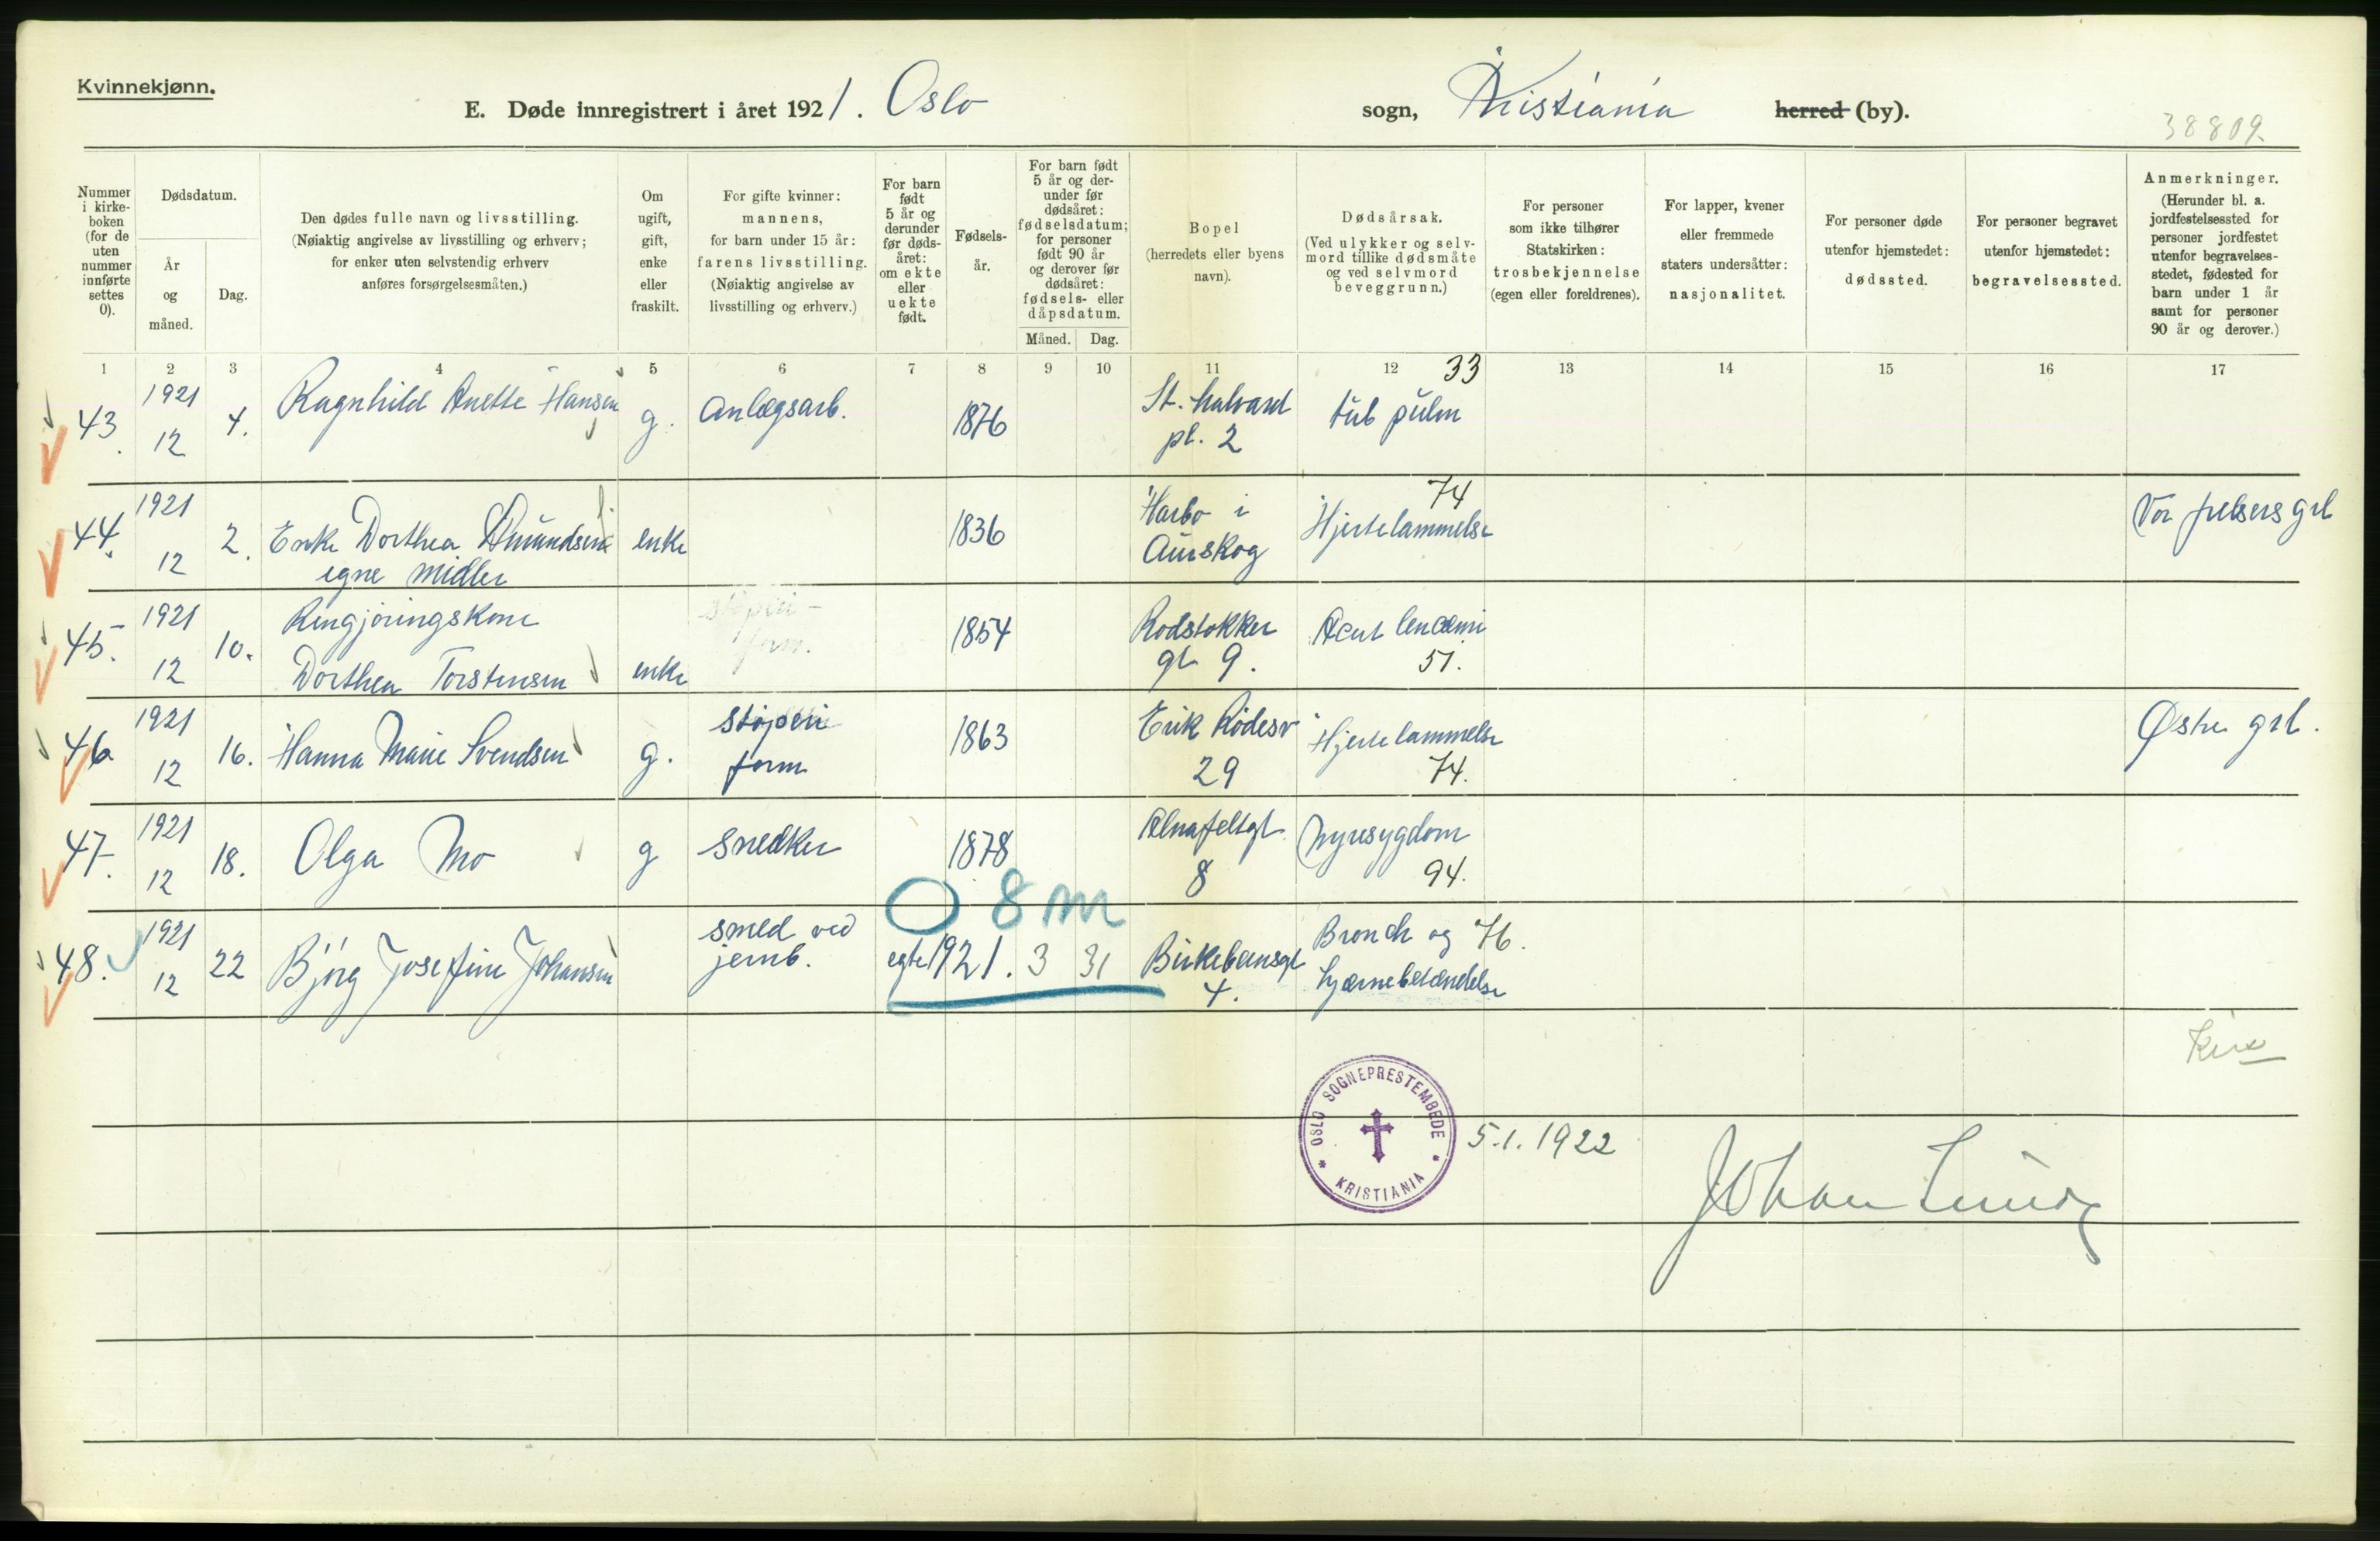 Kvinnekjønn.
E. Døde innregistrert i året 1921. Oslo sogn, Kristiania herred (by).
38809.
Nummer i kirkeboken (for de uten nummer innførte settes 0).
Dødsdatum.
År og måned.
Dag.
Den dødes fulle navn og livsstilling.
(Nøiaktig angivelse av livsstilling og erhverv;
for enker uten selvstendig erhverv
anføres forsørgelsesmåten.)
Om ugift, gift, enke eller fraskilt.
For gifte kvinner:
mannens,
for barn under 15 år:
farens livsstilling.
(Nøiaktig angivelse av
livsstilling og erhverv.)
For barn født 5 år og derunder før dødsåret: om ekte eller uekte født.
Fødselsår.
For barn født 5 år og derunder før dødsåret: fødselsdatum; for personer født 90 år og derover før dødsåret: fødsels- eller dåpsdatum.
Måned. Dag.
Bopel
(herredets eller byens
navn).
Dødsårsak.
(Ved ulykker og selvmord tillike dødsmåte og ved selvmord beveggrunn.)
For personer
som ikke tilhører
Statskirken:
trosbekjennelse
(egen eller foreldrenes).
For lapper, kvener
eller fremmede
staters undersåtter:
nasjonalitet.
For personer døde
utenfor hjemstedet:
dødssted.
For personer begravet
utenfor hjemstedet:
begravelsessted.
Anmerkninger.
(Herunder bl. a.
jordfestelsessted for
personer jordfestet
utenfor begravelses-
stedet, fødested for
barn under 1 år
samt for personer
90 år og derover.)
1 2 3 4 5 6 7 8 9 10 11 12 13 14 15 16 17
43. 1921 12 4. Ragnhild Anette Hansen g. Anlægsarb. 1876 St. Halvard pl. 2 tub pulm 33
44. 1921 12 2. Enke Dorthea Amundsen egne midler enke 1836 Harbo i Aurskog Hjertelammelse 74 Vor frelsers grl
45. 1921 12 10. Rengjøringskone Dorthea Torstensen enke støperi- form. 1854 Rodstokker gt 9. Acut leucæmi 51.
46 1921 12 16. Hanna Marie Svendsen g. støperi form 1863 Erik Rødesv 29 Hjertelammelse 74. Østre grl.
47. 1921 12 18. Olga Mo g snedker 1878 Alnafeltgt 8 Nyresygdom 94.
O 8 m
48. 1921 12 22 Bjørg Josefine Johansen smed ved jernb. egte 1921. 3 31 Birkebeinsgt 4. Bronch og 76. hjernebetændelse
OSLO SOGNEPRESTEMBEDE
* KRISTIANIA *
5.1.1922
Johan Lund